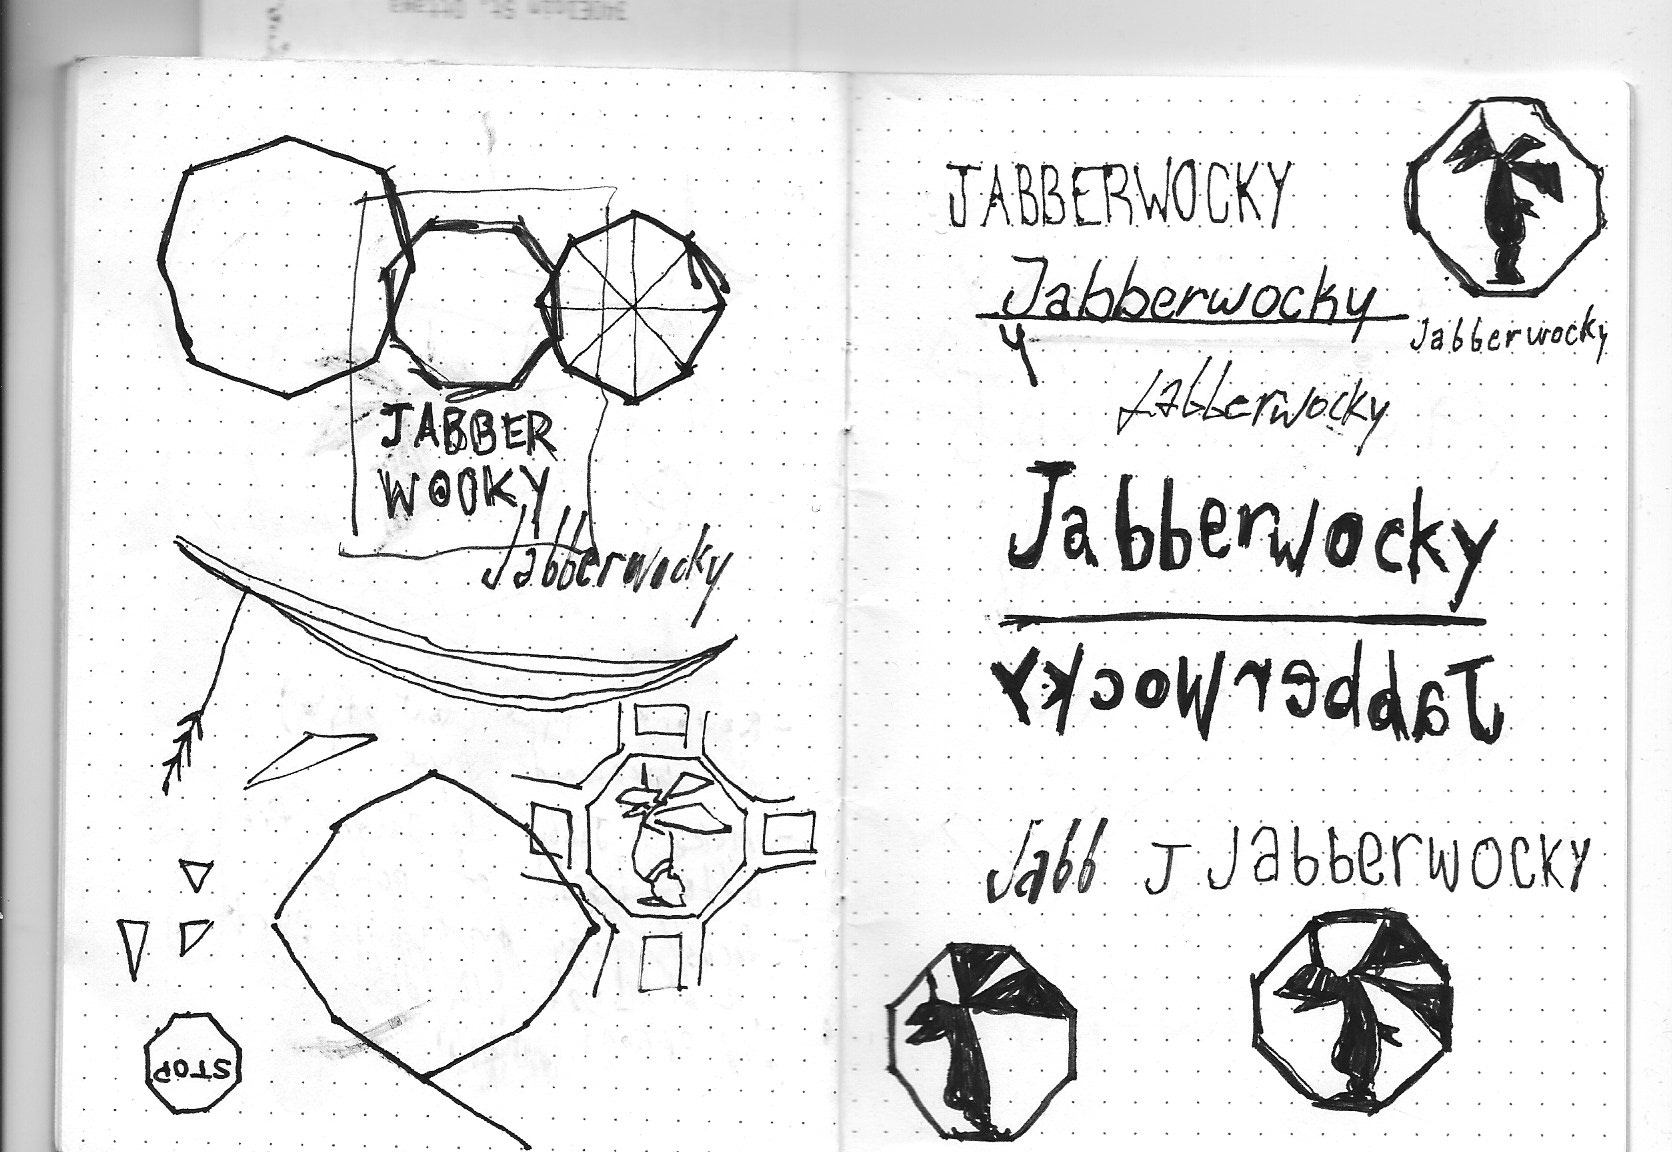 340Elgin St. Ottawa
JABBER
WOOKY
Jabberwocky
STOP
JABBERWOCKY
Jabberwocky
y
Jabberwocky
Jabberwocky
Jabberwocky
Jabberwocky
Jabb J Jabberwocky